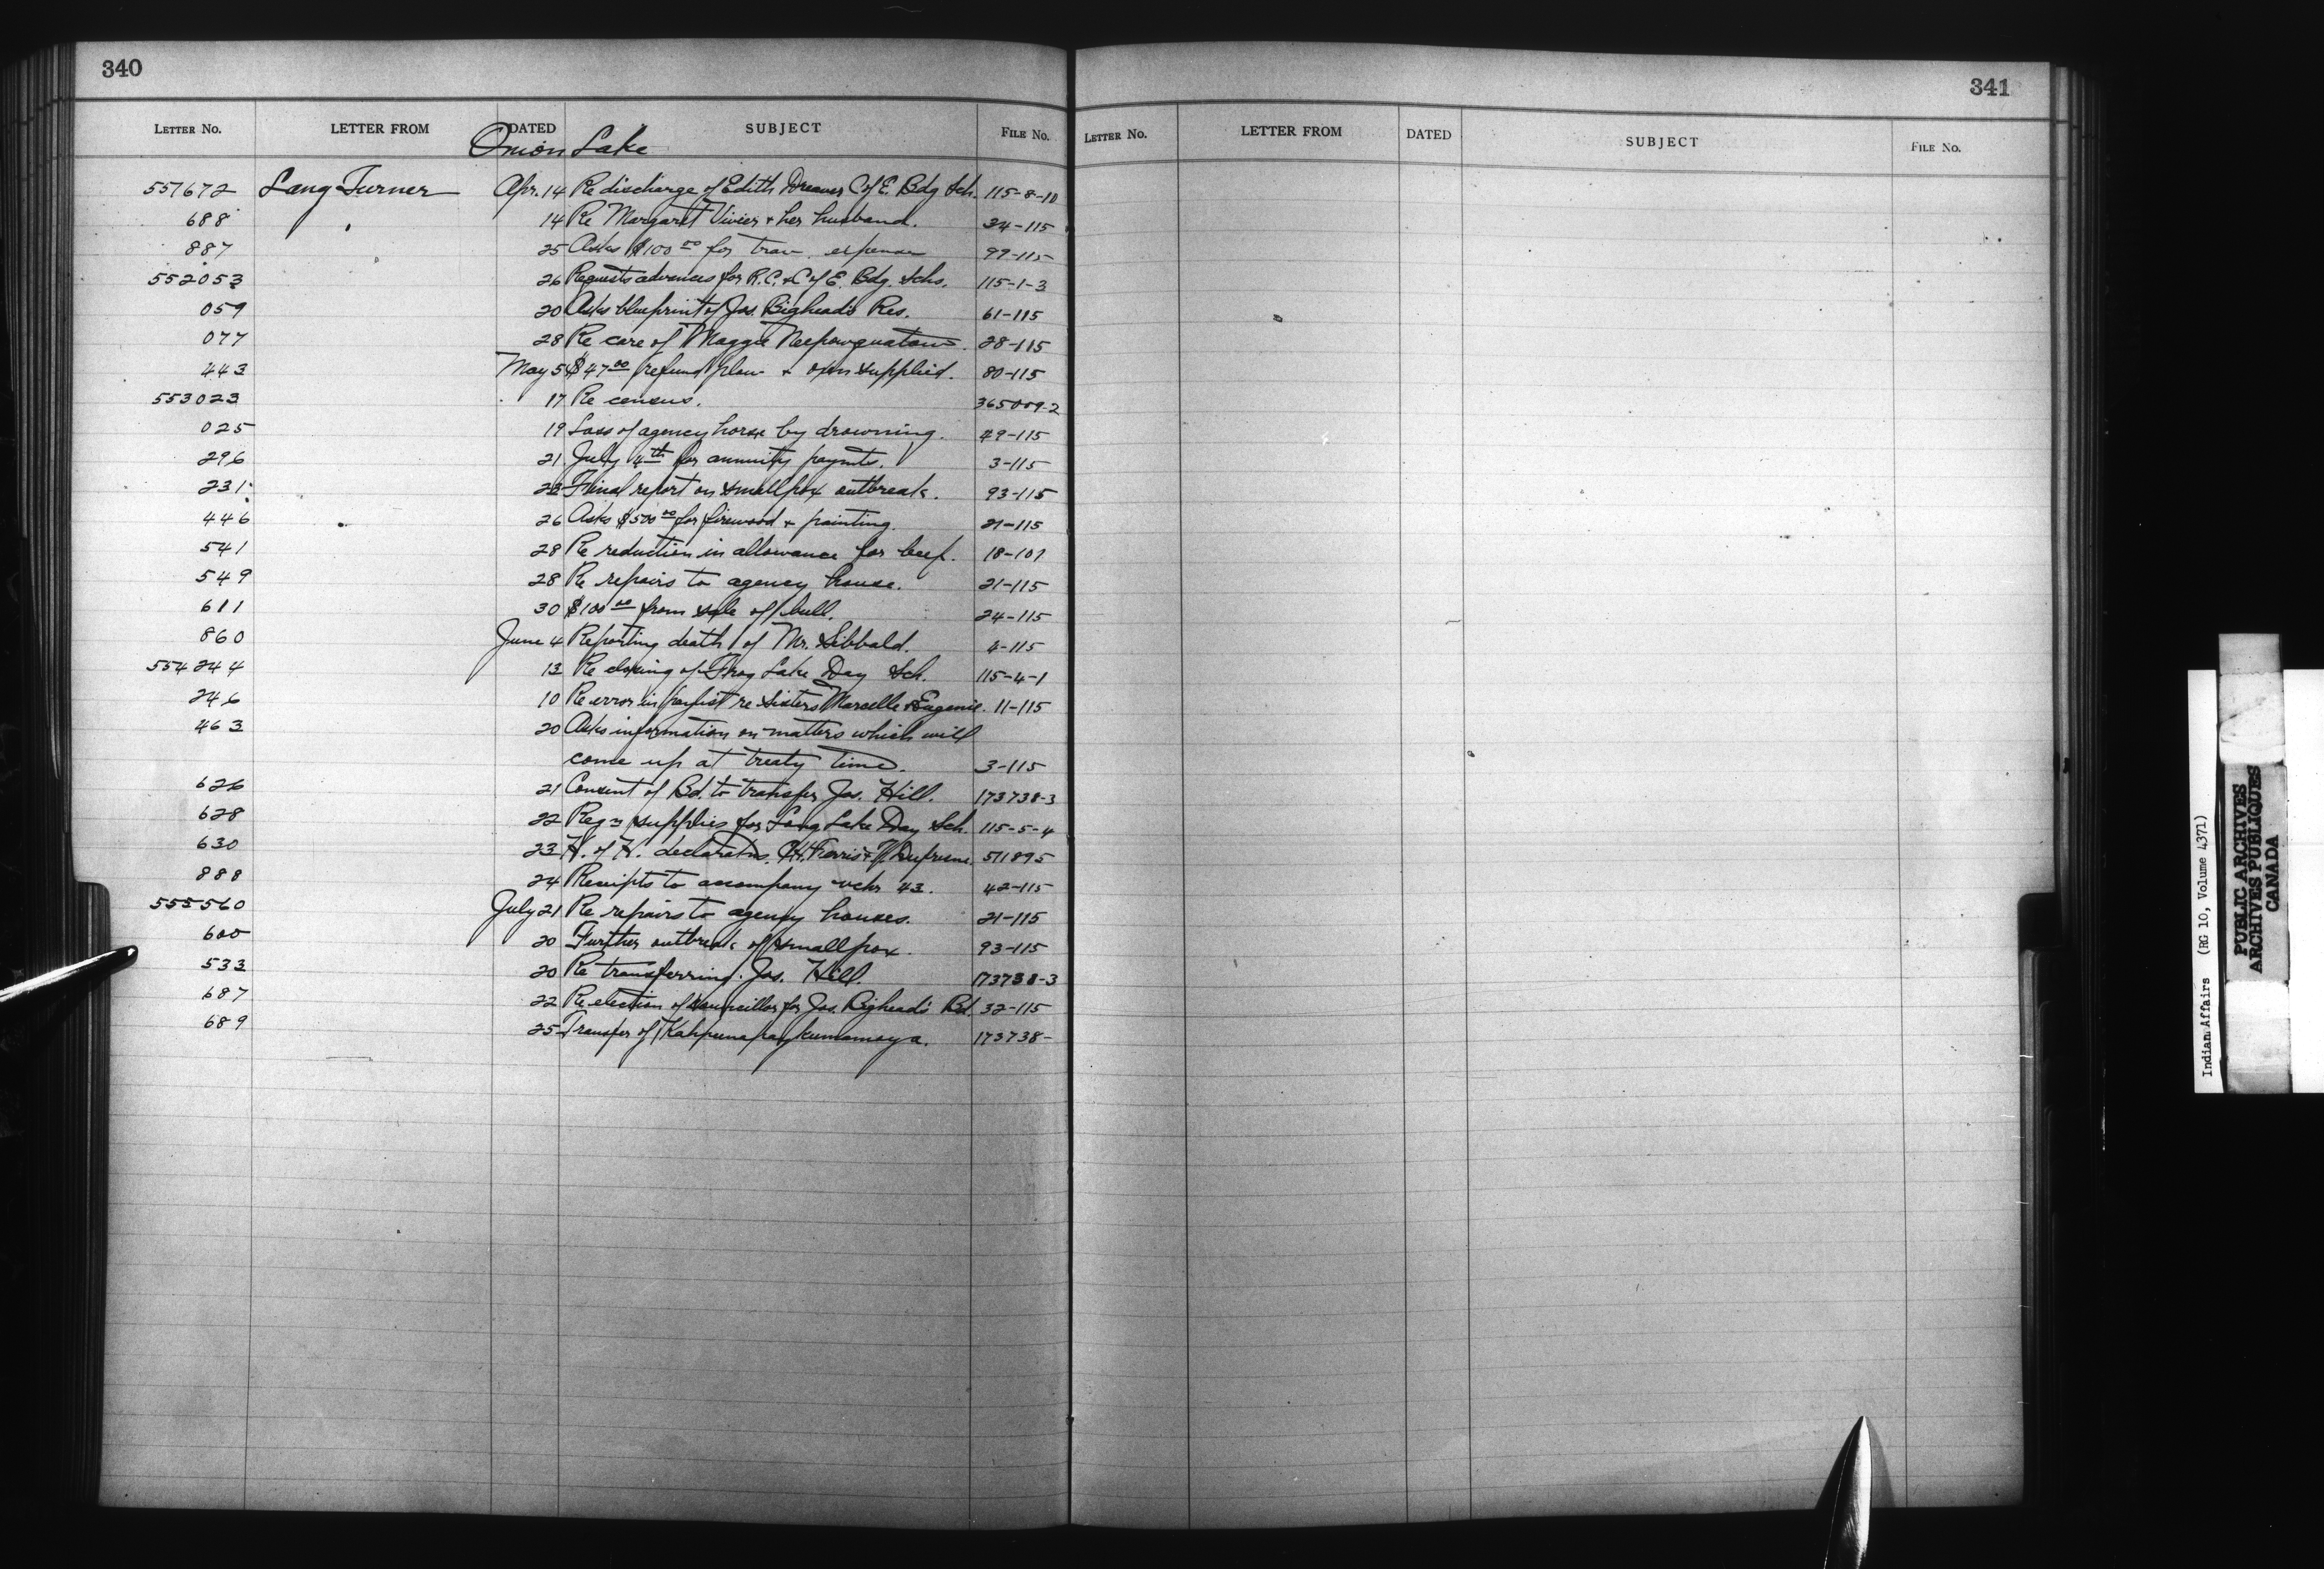 340
LETTER No. LETTER FROM DATED SUBJECT FILE No.
Onion Lake
551672 Lang Turner Apr. 14 Re discharge of Edith Dreaver C of E. Bdg Sch. 115-8-10
688 14 Re Margaret Vivier & her husband. 34-115
887 25 Asks $100 00 for trav. expenses 99-115
552053 26 Requests advances for R.C. & C of E. Bdg. Schs. 115-1-3
059 20 Asks blueprint of Jos. Bighead's Res. 61-115
077 28 Re care of Maggie 28-115
443 May 5 $47 00 refund plow & oxen supplied. 80-115
553023 17 Re census. 365009-2
025 19 Loss of agency horse by drowning. 49-115
296 21 July 4th for annuity paymts. 3-115
231 23 Final report on smallpox outbreak. 93-115
446 26 Asks $500 00 for firewood & painting 21-115
541 28 Re reduction in allowance for beef. 18-107
549 28 Re repairs to agency house. 21-115
611 30 $100 00 from sale of bull. 24-115
860 June 4 Reporting death of Mr. Sibbald. 4-115
554244 13 Re closing of Frog Lake Day Sch. 115-4-1
246 10 Re error in paylist re Sisters Marcelle & Eugenie. 11-115
463 20 Asks information on matters which will
come up at treaty time. 3-115
626 21 Consent of Bd. to transfer Jos. Hill. 173738-3
628 22 Reqn supplies for Long Lake Day Sch. 115-5-4
630 23 H. of H. declaratns. Ferris & Dufresne 511895
888 24 Receipts to accompany vchr 43. 42-115
555560 July 21 Re repairs to agency houses. 21-115
600 20 Further outbreak of smallpox. 93-115
533 20 Re transferring Jos. Hill. 173738-3
687 22 Re election of councillor for Jos. Bighead's Bd. 32-115
689 25 Transfer of 173738-
341
LETTER No. LETTER FROM DATED SUBJECT FILE No.
Indian Affairs (RG 10, Volume 4371)
PUBLIC ARCHIVES
ARCHIVES PUBLIQUES
CANADA